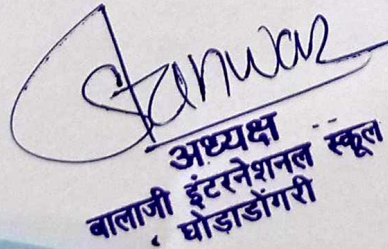 Stanwar
अध्यक्ष
बालाजी इंटरनेशनल स्कूल
घोड़ाडोंगरी